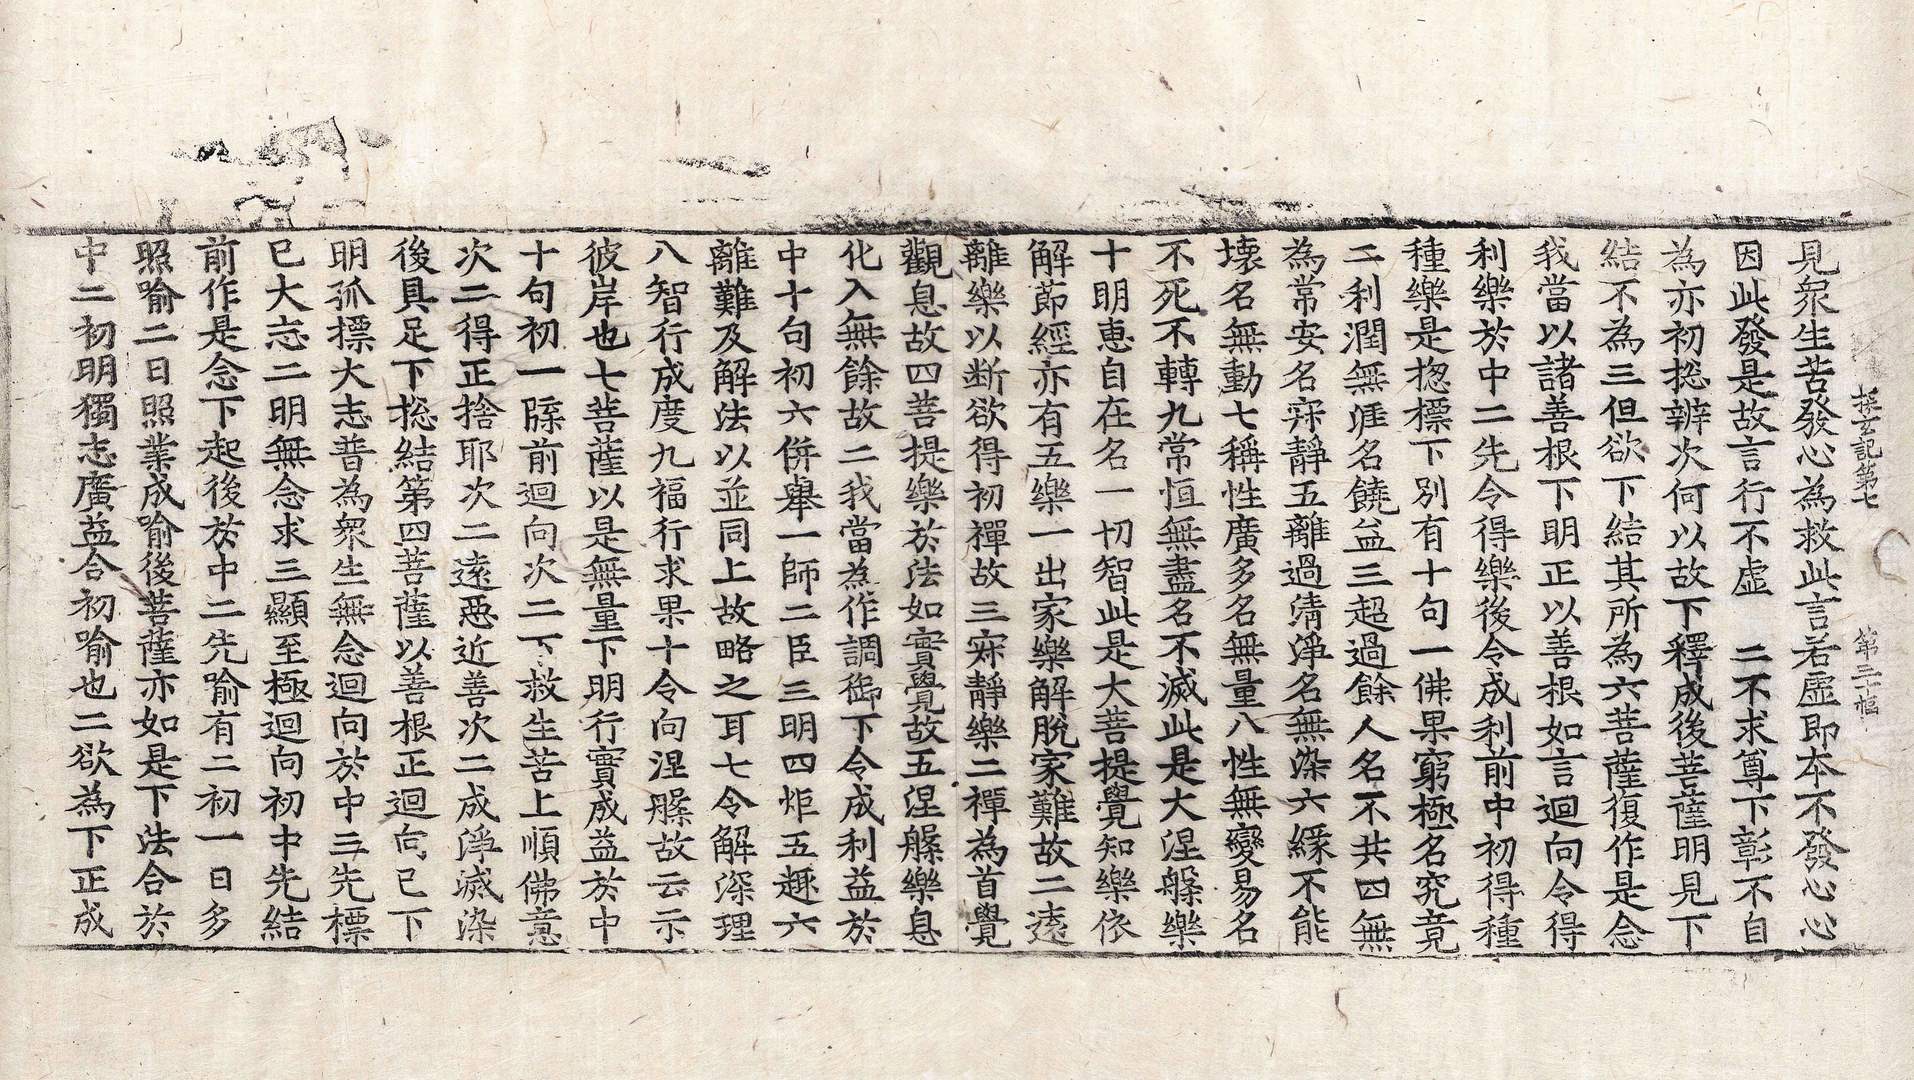 探玄記第七 第二十幅
見衆生苦發心為救此言若虛即本不發心心
因此發是故言行不虛 二不求尊下彰不自
為亦初揔辨次何以故下釋成後菩薩明見下
結不為三但欲下結其所為六菩薩復作是念
我當以諸善根下明正以善根如言迴向令得
利樂於中二先令得樂後令成利前中初得種
種樂是揔標下別有十句一佛果窮極名究竟
二利潤無涯名饒益三超過餘人名不共四無
為常安名寂靜五離過清淨名無染六緣不能
壞名無動七稱性廣多名無量八性無變易名
不死不轉九常恒無盡名不滅此是大涅槃樂
十明恵自在名一切智此是大菩提覺知樂依
解節經亦有五樂一出家樂解脫家難故二遠
離樂以断欲得初禪故三寂靜樂二禪為首覺
觀息故四菩提樂於法如實覺故五涅槃樂息
化入無餘故二我當為作調御下令成利益於
中十句初六併舉一師二臣三明四炬五趣六
離難及解法以並同上故略之耳七令解深理
八智行成度九福行求果十令向涅槃故云示
彼岸也七菩薩以是無量下明行實成益於中
十句初一牒前迴向次二下救生苦上順佛意
次二得正捨耶次二遠惡近善次二成淨滅染
後具足下揔結第四菩薩以善根正迴向已下
明孤標大志普為衆生無念迴向於中三先標
巳大志二明無念求三顯至極迴向初中先結
前作是念下起後於中二先喻有二初一日多
照喻二日照業成喻後菩薩亦如是下法合於
中二初明獨志廣益合初喻也二欲為下正成